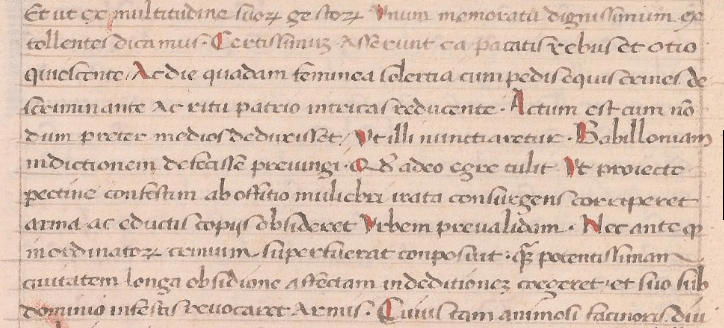 Et ut ex multitudine suoꝝ gestoꝝ Vnum memoratu dignissimum ex
tollentes dicamus. Certissimuꝫ Asserunt ea pacatis rebus et otio
quiescente, Ac die quadam feminea solertia cum pedisequis crines di
scriminante Ac ritu patrio in tricas reducente. Actum est cum nō
dum preter medios deduxisset, Vt illi nunctiaretur. Babilloniam
in dictionem defecisse previngi. Qđ adeo egre tulit Vt proiecto
pectine confestim ab offitio muliebri irata consurgens corriperet
arma ac eductis copiis obsideret Vrbem prevalidam. Nec ante ꝙ
inordinatoꝝ crinium superfuerat conposuit. qꝫ potentissimam
civitatem longa obsidione affectam in deditionem cogeret et suo sub
dominio infestis revocaret Armis. Cuius tam animosi facinoris diu